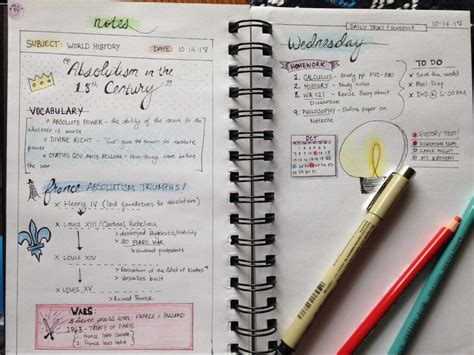 notes
SUBJECT: WORLD HISTORY
DATE: 10·14·17
"Absolutism in the
18th Century"
VOCABULARY
ABSOLUTE POWER - the ability of the crown to do
whatever it wants
DIVINE RIGHT - "God" gave the crown its absolute
power
STATUS QUO ANTE BELLUM - How things were before
the war
france ABSOLUTISM TRIUMPHS!
Henry IV (laid foundations for absolutism)
Louis XIII / Cardinal Richelieu
destroyed Huguenots/nobility
30 YEARS WAR
crushed protestants
LOUIS XIV
Revocation of the Edict of Nantes
Versailles built
LOUIS XV
Ruined France
WARS:
Seven years war FRANCE v. ENGLAND
1763 - TREATY OF PARIS
1. France loses Canada
2. France loses India
DAILY TASKS
10·14·17
Wednesday
HOMEWORK
1. CALCULUS - Study pp.
2. HISTORY - Study notes
3. WR 121 - Revise Essay about
Dickinson
4. PHILOSOPHY - Outline paper on
Nietzsche
TO DO
Save the world
Meal Prep
DnD @ 6:00 PM
OCT
HISTORY TEST!
MY BIRTHDAY